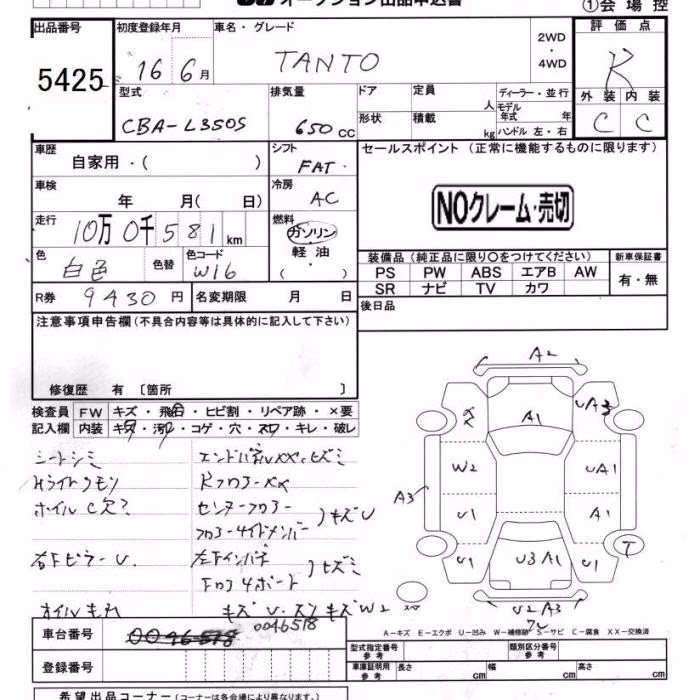 オークション出品申込書
①会場控
出品番号 初度登録年月 車名・グレード 評価点
5425 16 6月 TANTO 2WD・4WD R
型式 排気量 ドア 定員 人 ディーラー・並行 外装 内装
CBA-L350S 650cc 形状 積載 kg モデル年式 年 ハンドル 左・右 C C
車歴 シフト セールスポイント（正常に機能するものに限ります）
自家用・( ) FAT・
車検 冷房
年 月( 日) AC
NOクレーム・売切
走行 燃料
10万0千581km ガソリン・軽油・( )
色 白色 色替 色コード W16
装備品（純正品に限り○をつけてください） 新車保証書
PS PW ABS エアB AW 有・無
SR ナビ TV カワ
R券 9430円 名変期限 月 日
後日品
注意事項申告欄（不具合内容等は具体的に記入して下さい）
修復歴 有〔箇所 〕
検査員記入欄 FW キズ・飛石・ヒビ割・リペア跡・×要
内装 キズ・汚れ・コゲ・穴・スレ・キレ・破レ
シートシミ
Hライトクモリ
ホイルC欠?
右下ピラーU.
オイルもれ
Rフロアーxx
センターフロアー
フロアーサイドメンバー キズU
左右インパネ
A2
A1
UA3
W2
UA1
A3
U1
A1
T
U1
U3 A1
U1
スペア
U2 A3
A－キズ E－エクボ U－凹み W－補修跡 S－サビ C－腐食 XX－交換済
車台番号 0046518 0046518
登録番号
型式指定番号 参考 類別区分番号 参考
車庫証明用 参考 長さ cm 幅 cm 高さ cm
希望出品コーナー（コーナーは各会場により異なります。）